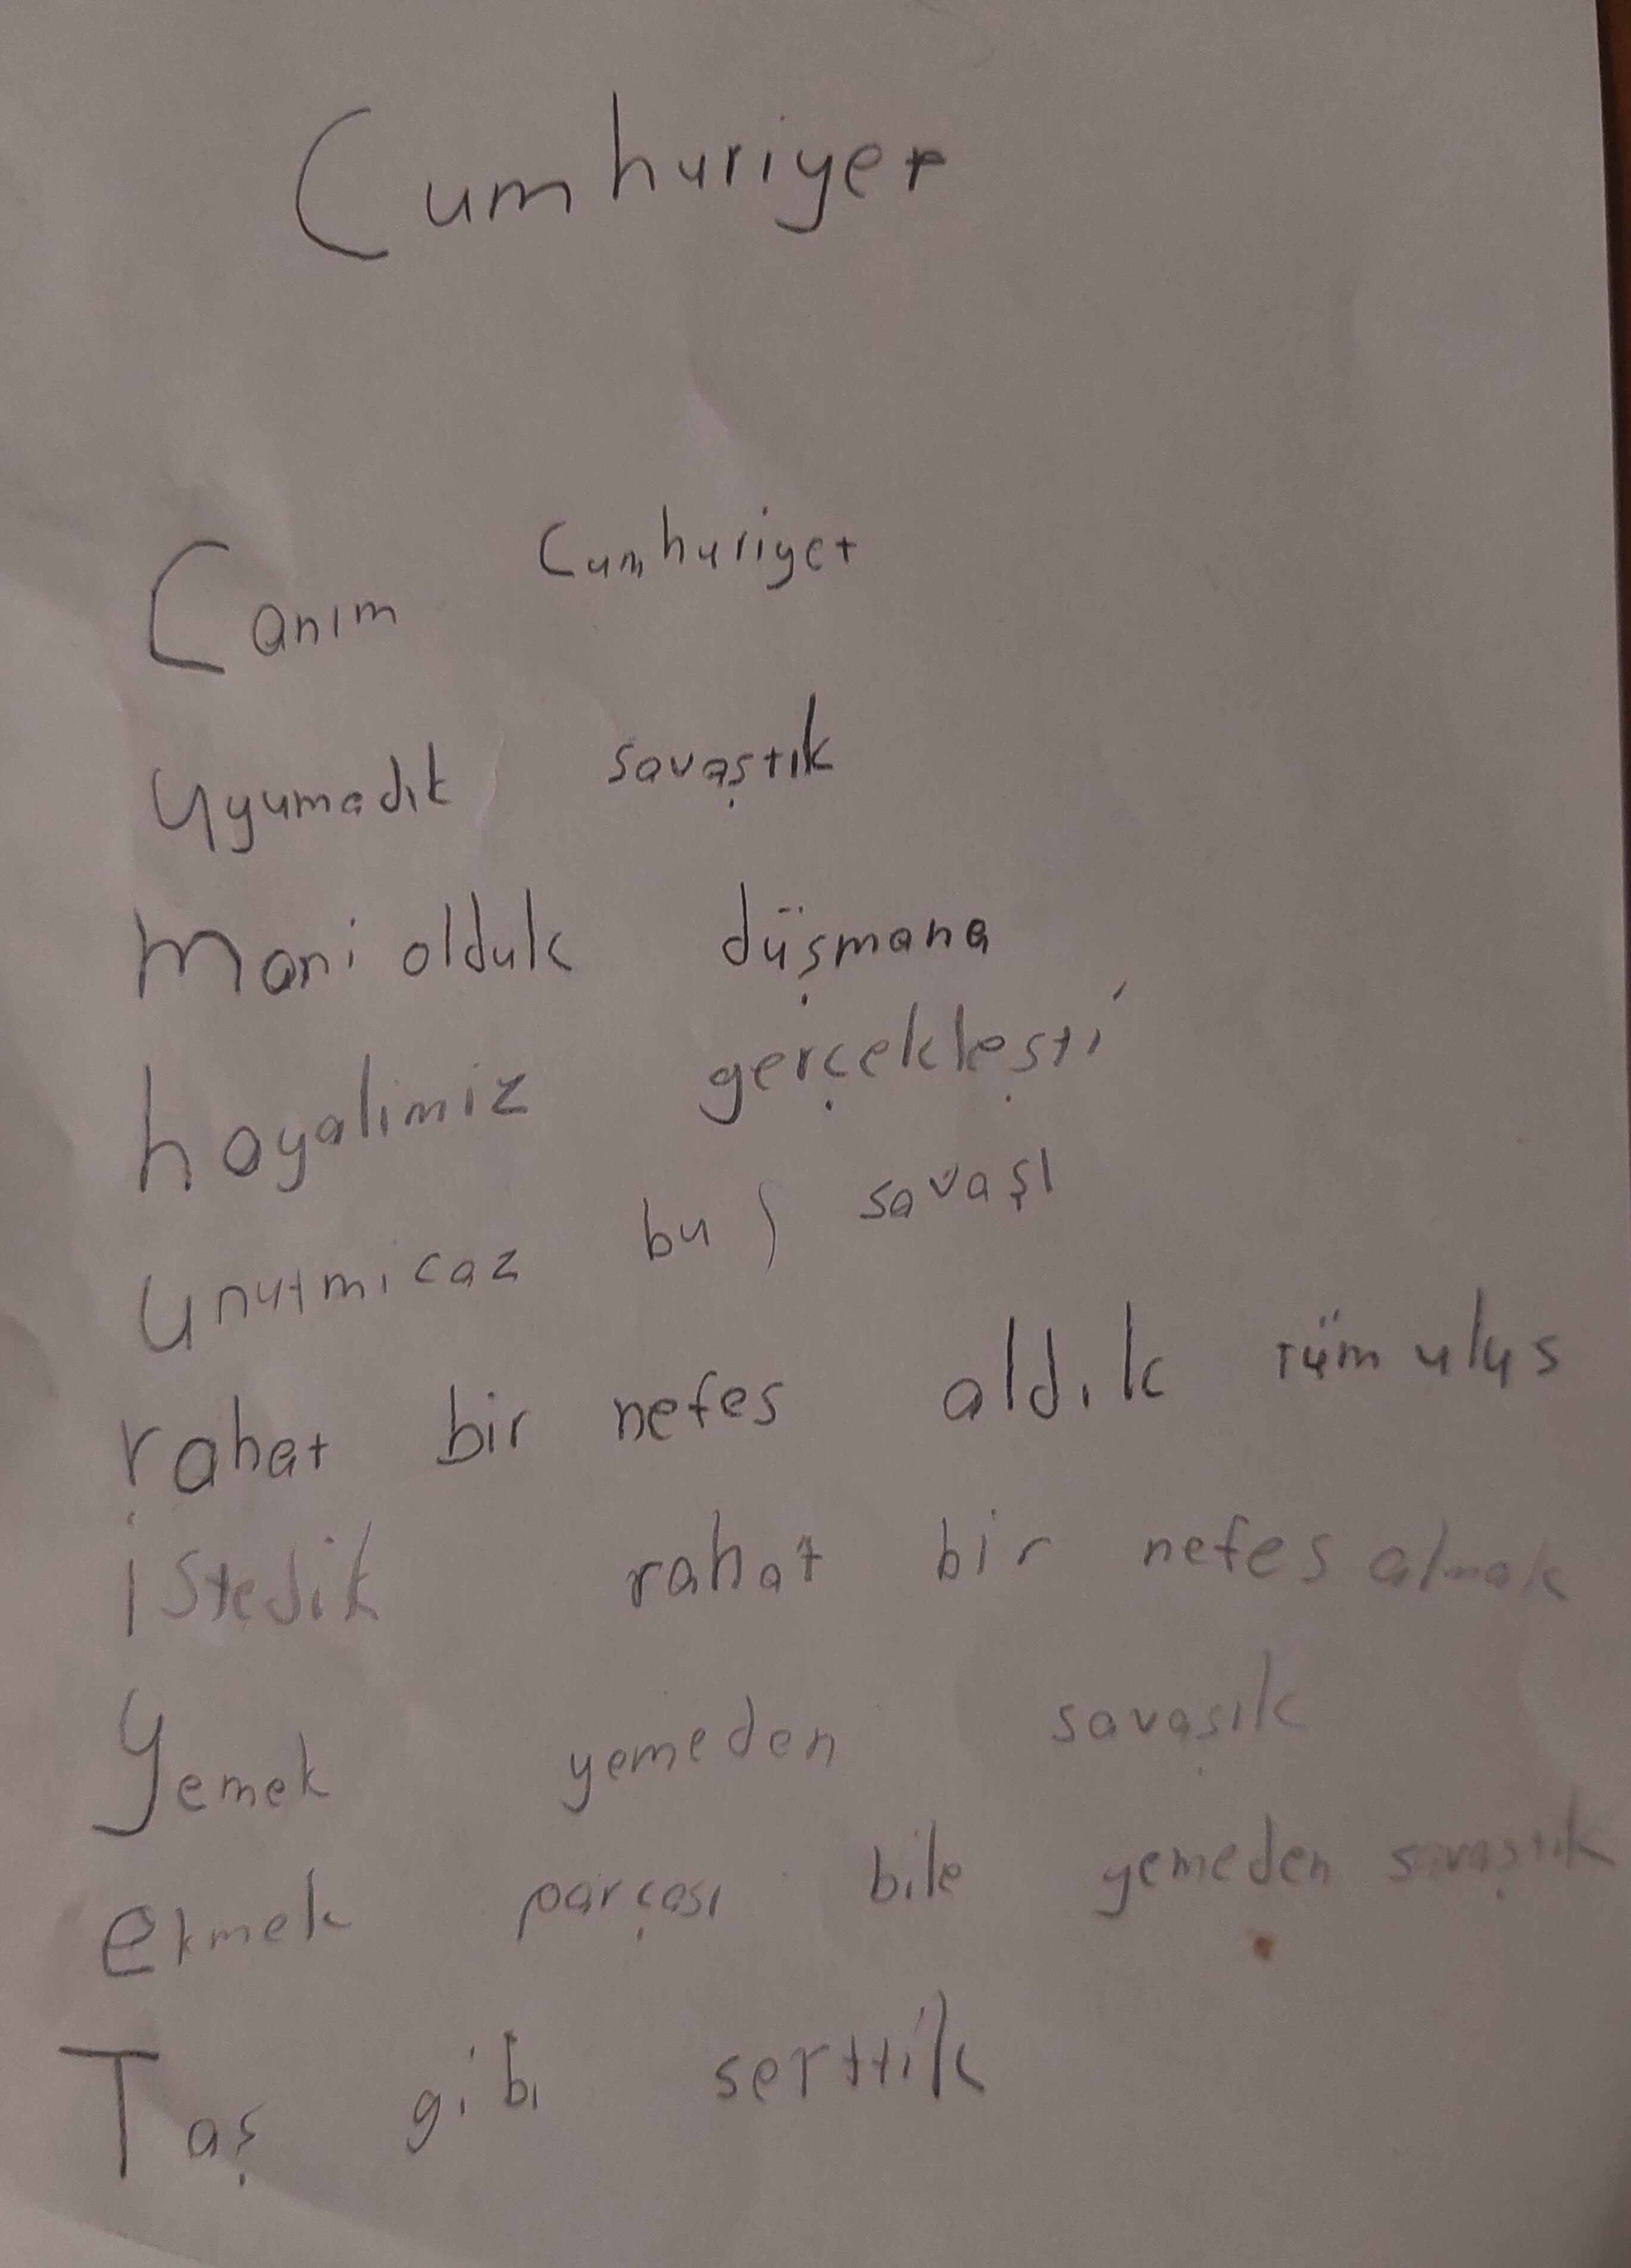 Cumhuriyet
Canım Cumhuriyet
Uyumadık savaştık
Mani olduk düşmana
hayalimiz gerçekleşti
Unutmicaz bu savaşı
rahat bir nefes aldık tüm ulus
istedik rahat bir nefes almak
Yemek yemeden savaşık
Ekmek parçası bile yemeden savaştık
Taş gibi serttik